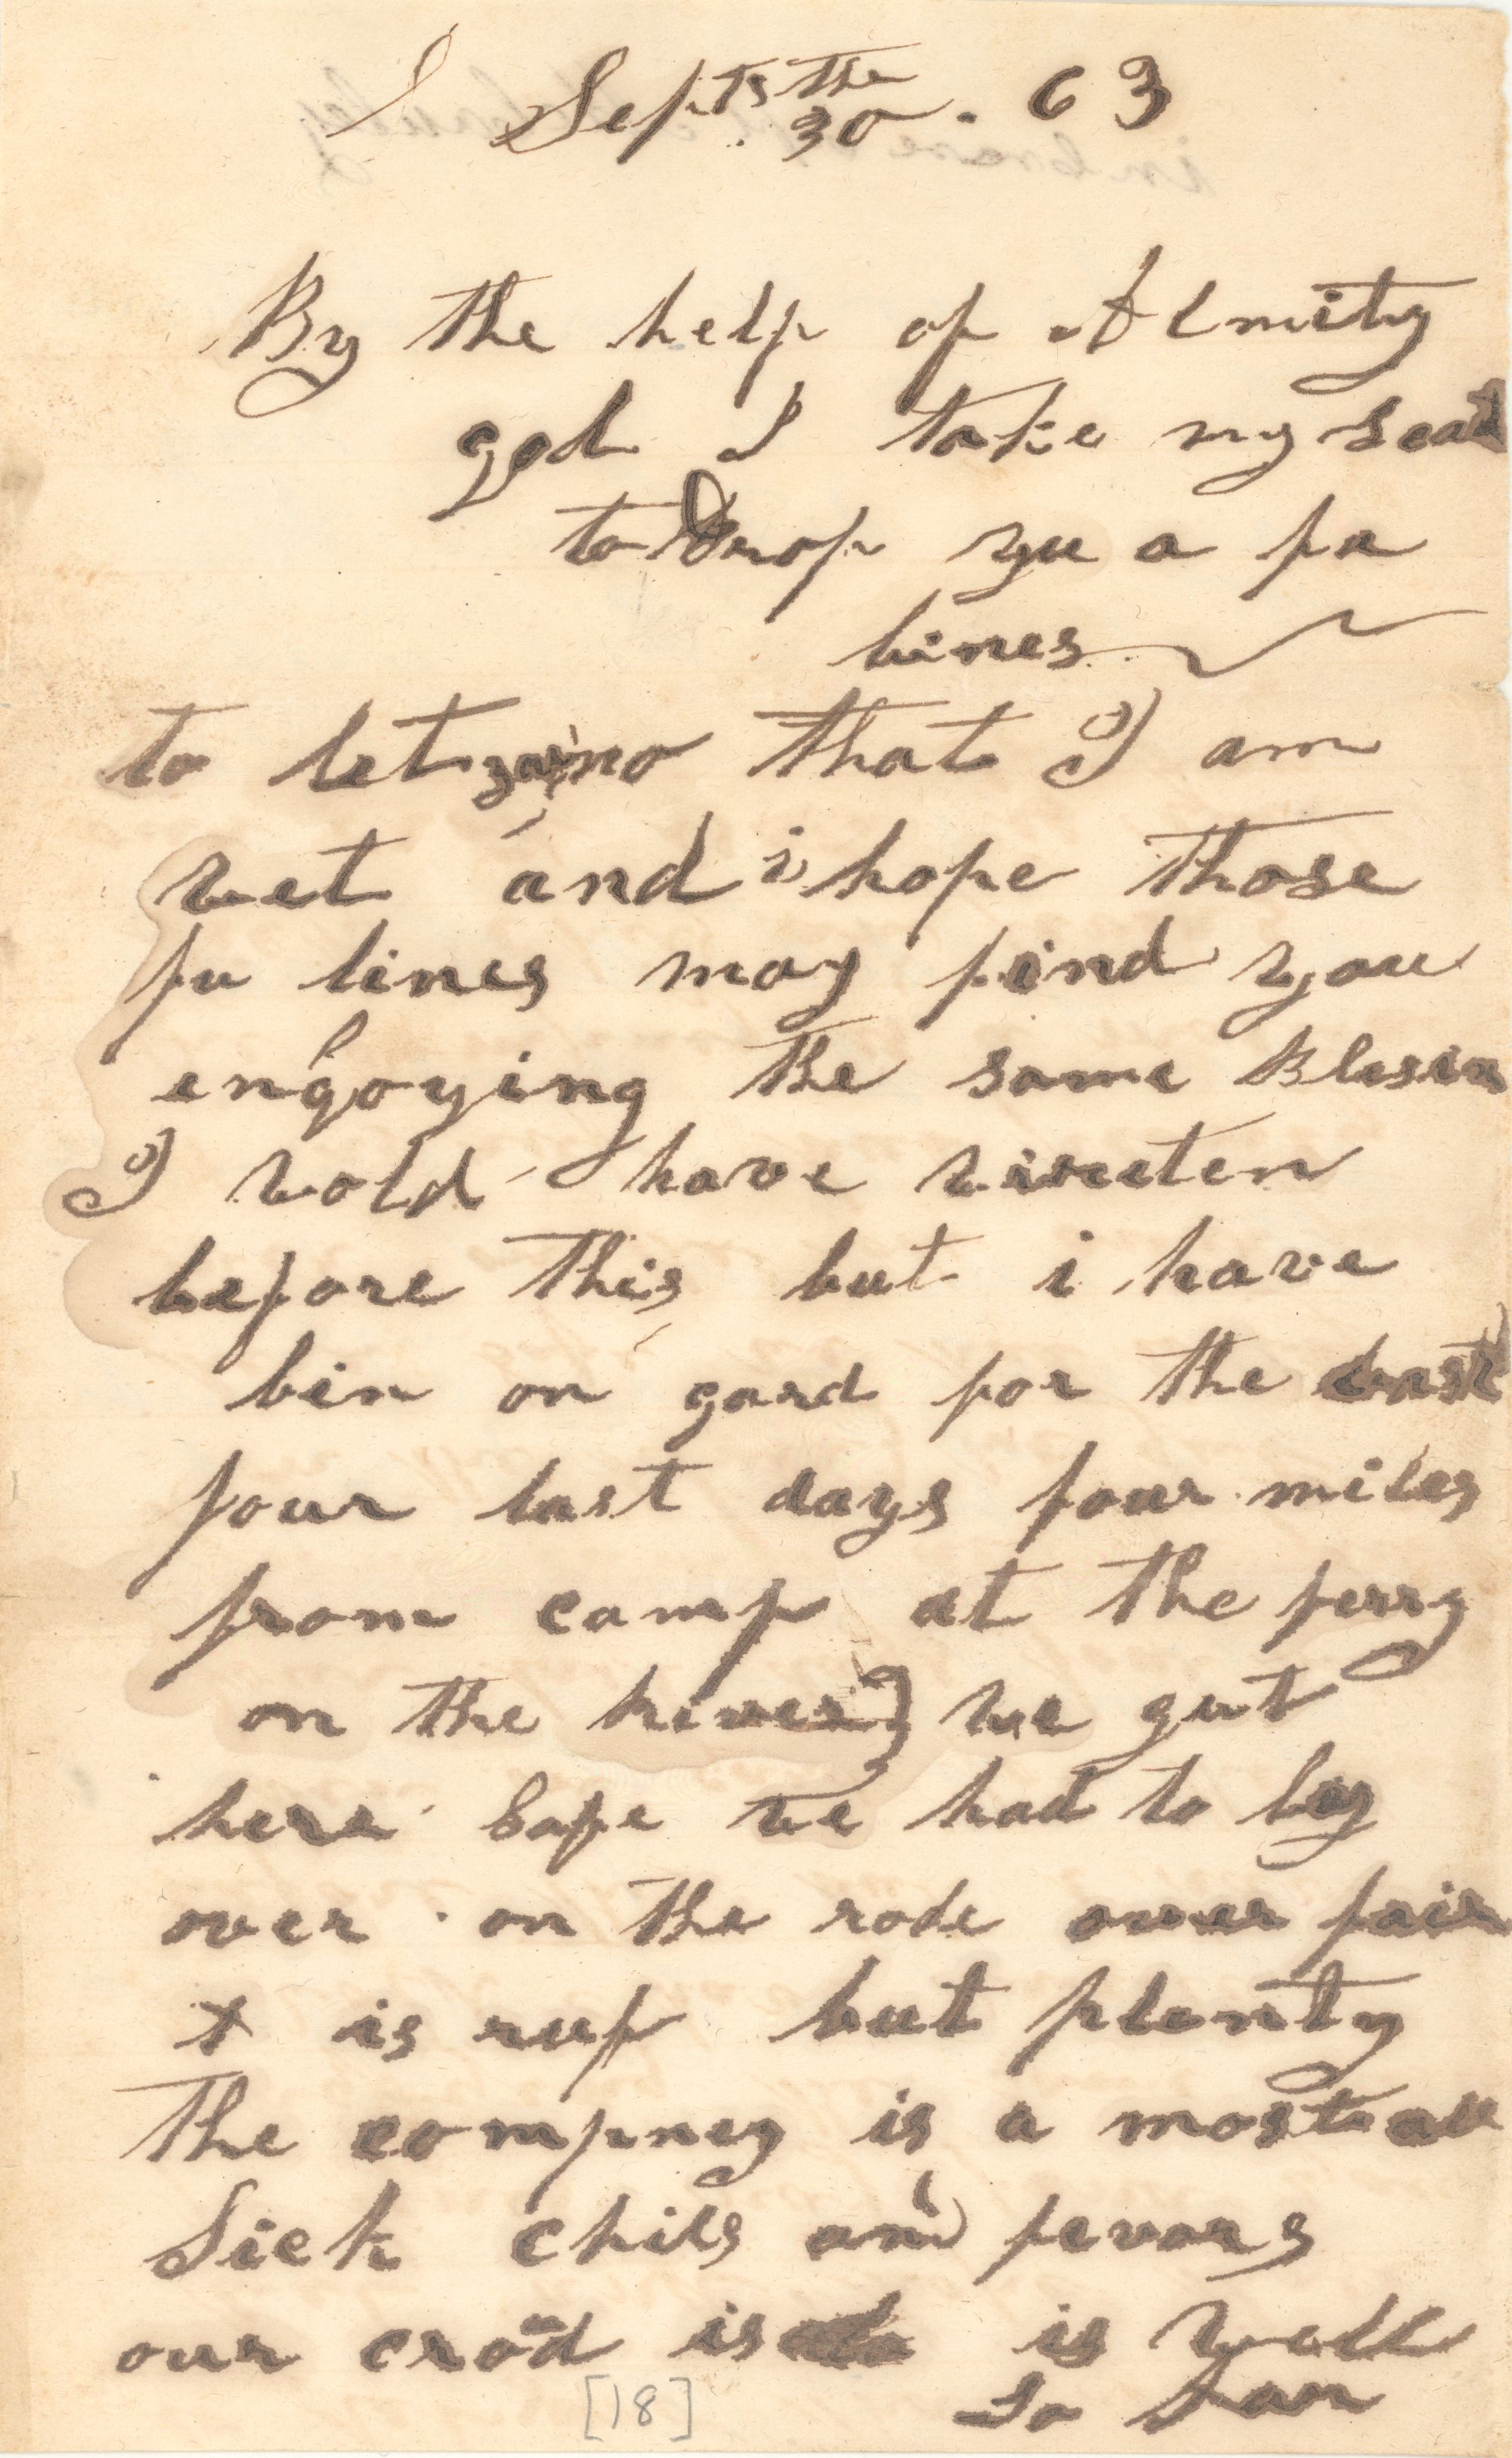 Sept the 30. 63
By the help of Almity
god I take my seat
to Drop yu a fu
lines
to let you no that I am
wel and i hope those
fu lines may find you
engoying the same Blesin
I wold have wireten
before this but i have
bin on gard for the last
four last days four miles
from camp at the ferry
on the river we gut
here safe we had to lay
over on the rode over fair
it is ruf but plenty
The compney is a most all
Sick chils and fevors
our crod is is well
So far
[18]